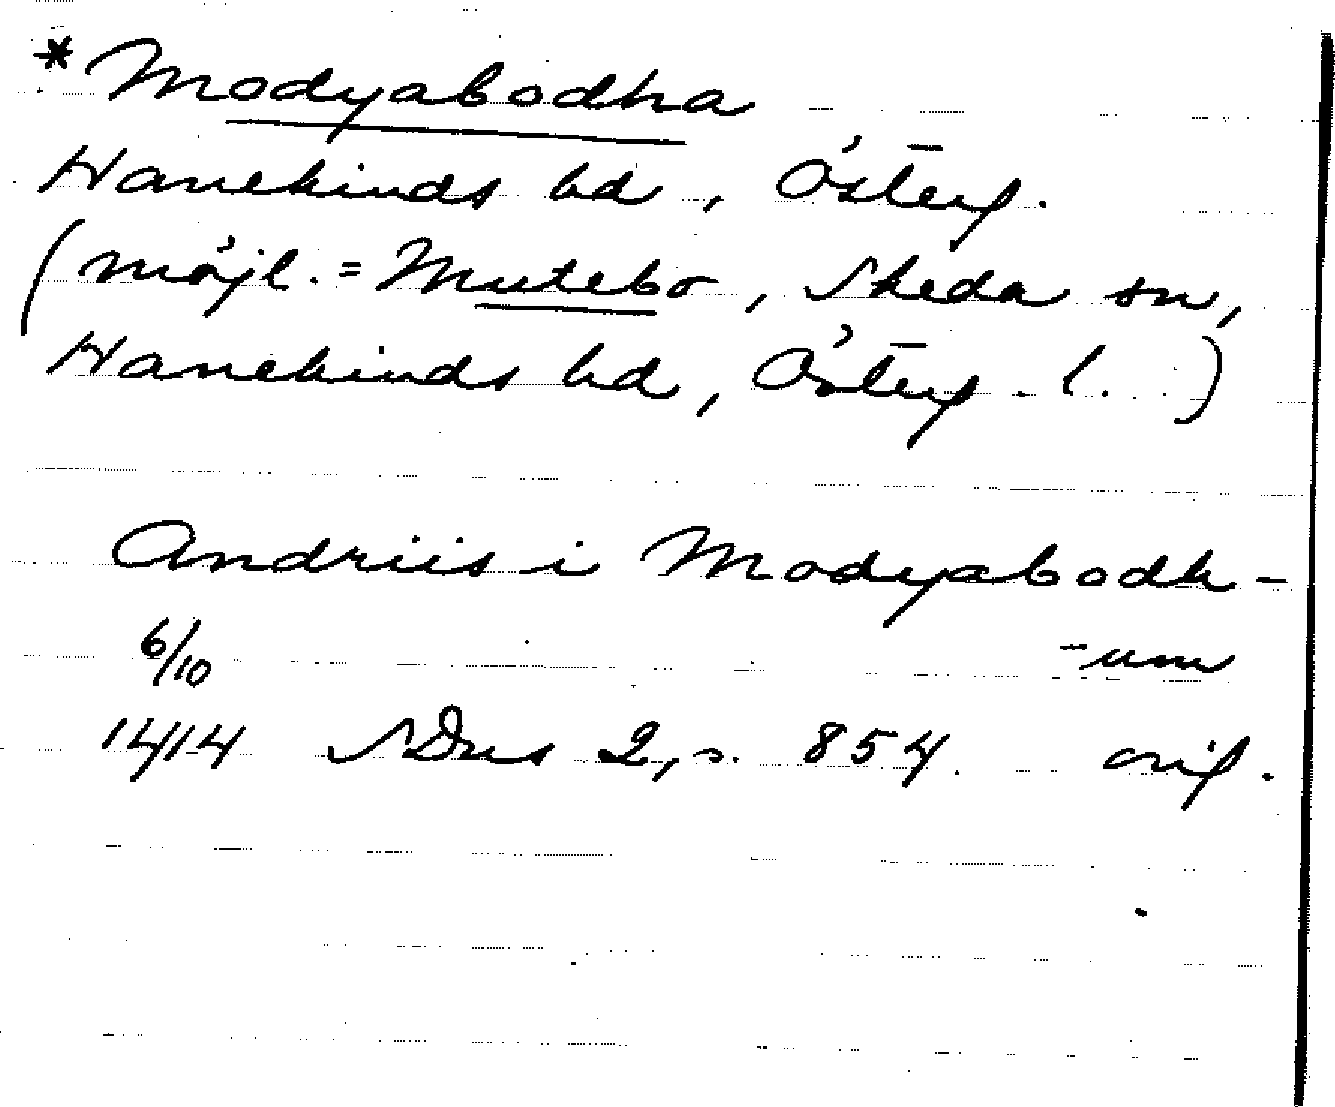 *Modyabodha
Hanekinds hd, Österg.
(möjl. = Mutebo, Skeda sn,
Hanekinds hd, Österg. l.)
Andriis i Modyabodh-
6/10 -um
1414 SDns 2, s. 854. orig.